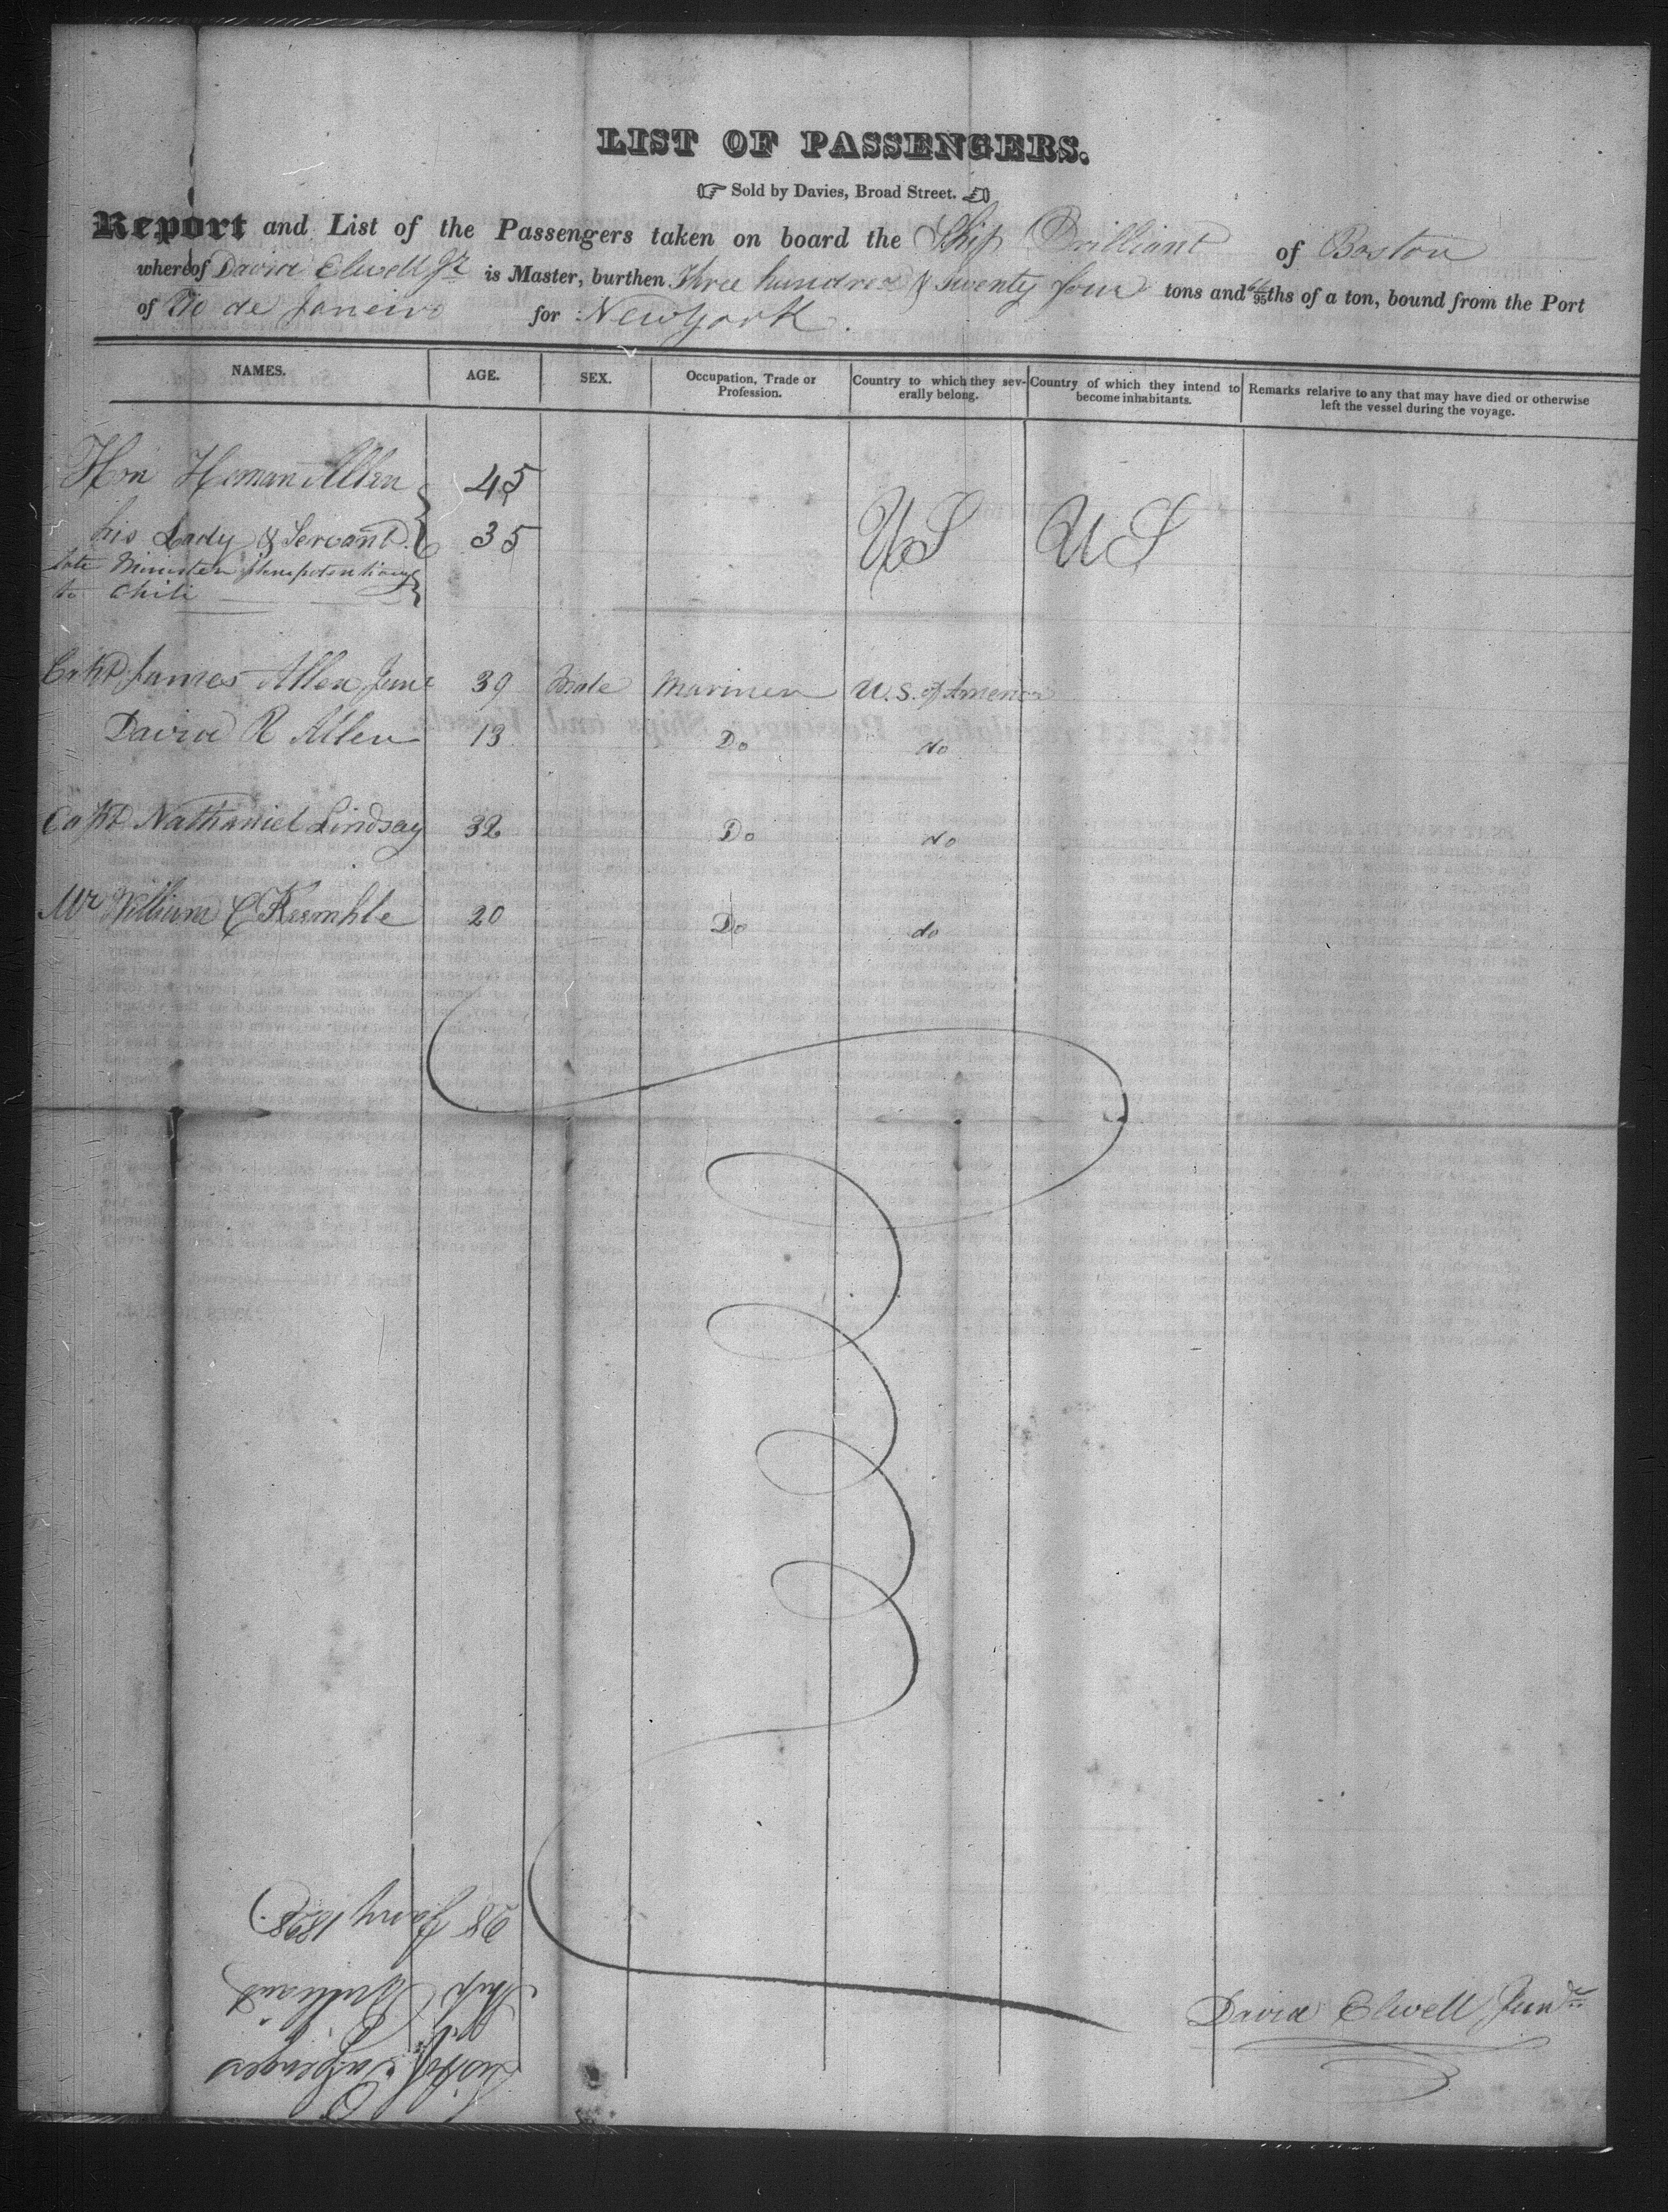 LIST OF PASSENGERS.
Sold by Davies, Broad Street.
Report and List of the Passengers taken on board the Ship Brilliant of Boston
whereof David Elwell Jr is Master, burthen Three hundred & twenty four tons and /95ths of a ton, bound from the Port
of Rio de Janeiro for New York.
NAMES. AGE. SEX. Occupation, Trade or Profession. Country to which they severally belong. Country of which they intend to become inhabitants. Remarks relative to any that may have died or otherwise left the vessel during the voyage.
Hon Heman Allen 45
his Lady & Servant 35 US US
late Minister plenipotentiary
to Chili
Capt James Allen Junr 39 Male Mariner U.S. of America
David R Allen 13 Do do
Capt Nathaniel Lindsay 32 Do do
Mr William C Kermble 20 Do do
David Elwell Junr
List of Passengers
Ship Brilliant
28 Jany 1828